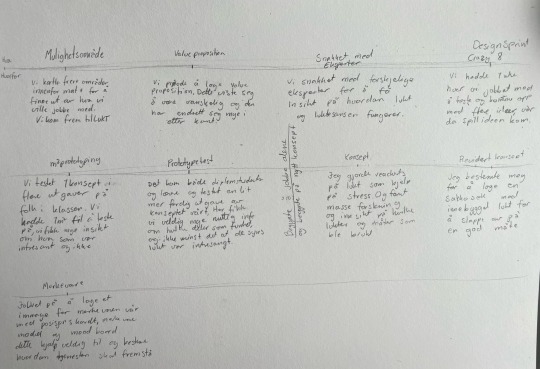 Mulighetsområde
Vi hadde flere områder
innenfor møte for å
finne ut av hva vi
ville jobbe med.
Vi kom frem til LUKT
Value proposition
Vi prøvde å lage value
proposition. Dette viste seg
å være vanskelig og den
har endret seg mye
etter hvert
Snakket med
Eksperter
Vi snakket med forskjellige
eksperter for å få
insikt på hvordan lukt
og luktesansen fungerer.
Design Sprint
Crazy 8
Vi hadde 1 uke
hvor vi jobbet med
å teste og komme opp
med flere ideer var
da spill ideen kom.
prototyping
Vi testet 1 konsept
flere utgaver på
folk i klassen. Vi
lagde spill til å teste
på, vi fikk mye insikt
om hva som var
intresant og ikke
Prototype test
Det kom både diplomstudenter
og lærere og testet en litt
mer ferdig utgave av
konseptet vårt. Her fikk
vi veldig mye nyttig info
om hvilke deler som funket,
og ikke minst det at de syns
lukt var intresangt.
Begynte å jobbe alene
og byttet på nytt konsept
Konsept
Jeg gjorde research
på lukt som hjelp
på stress. Og fant
masse forskning
og insikt på hvilke
lukter og måter som
ble brukt
Revidert konsept
Jeg bestemte meg
for å lage en
sakkosekk med
innebygget lukt for
å slappe av på
en god måte
Merkevare
Jobbet på å lage et
image for merkevaren vår
med posisjonskart, merkevare
modell og mood board
dette hjalp veldig til og bestemme
hvordan tjenesten skal fremstå